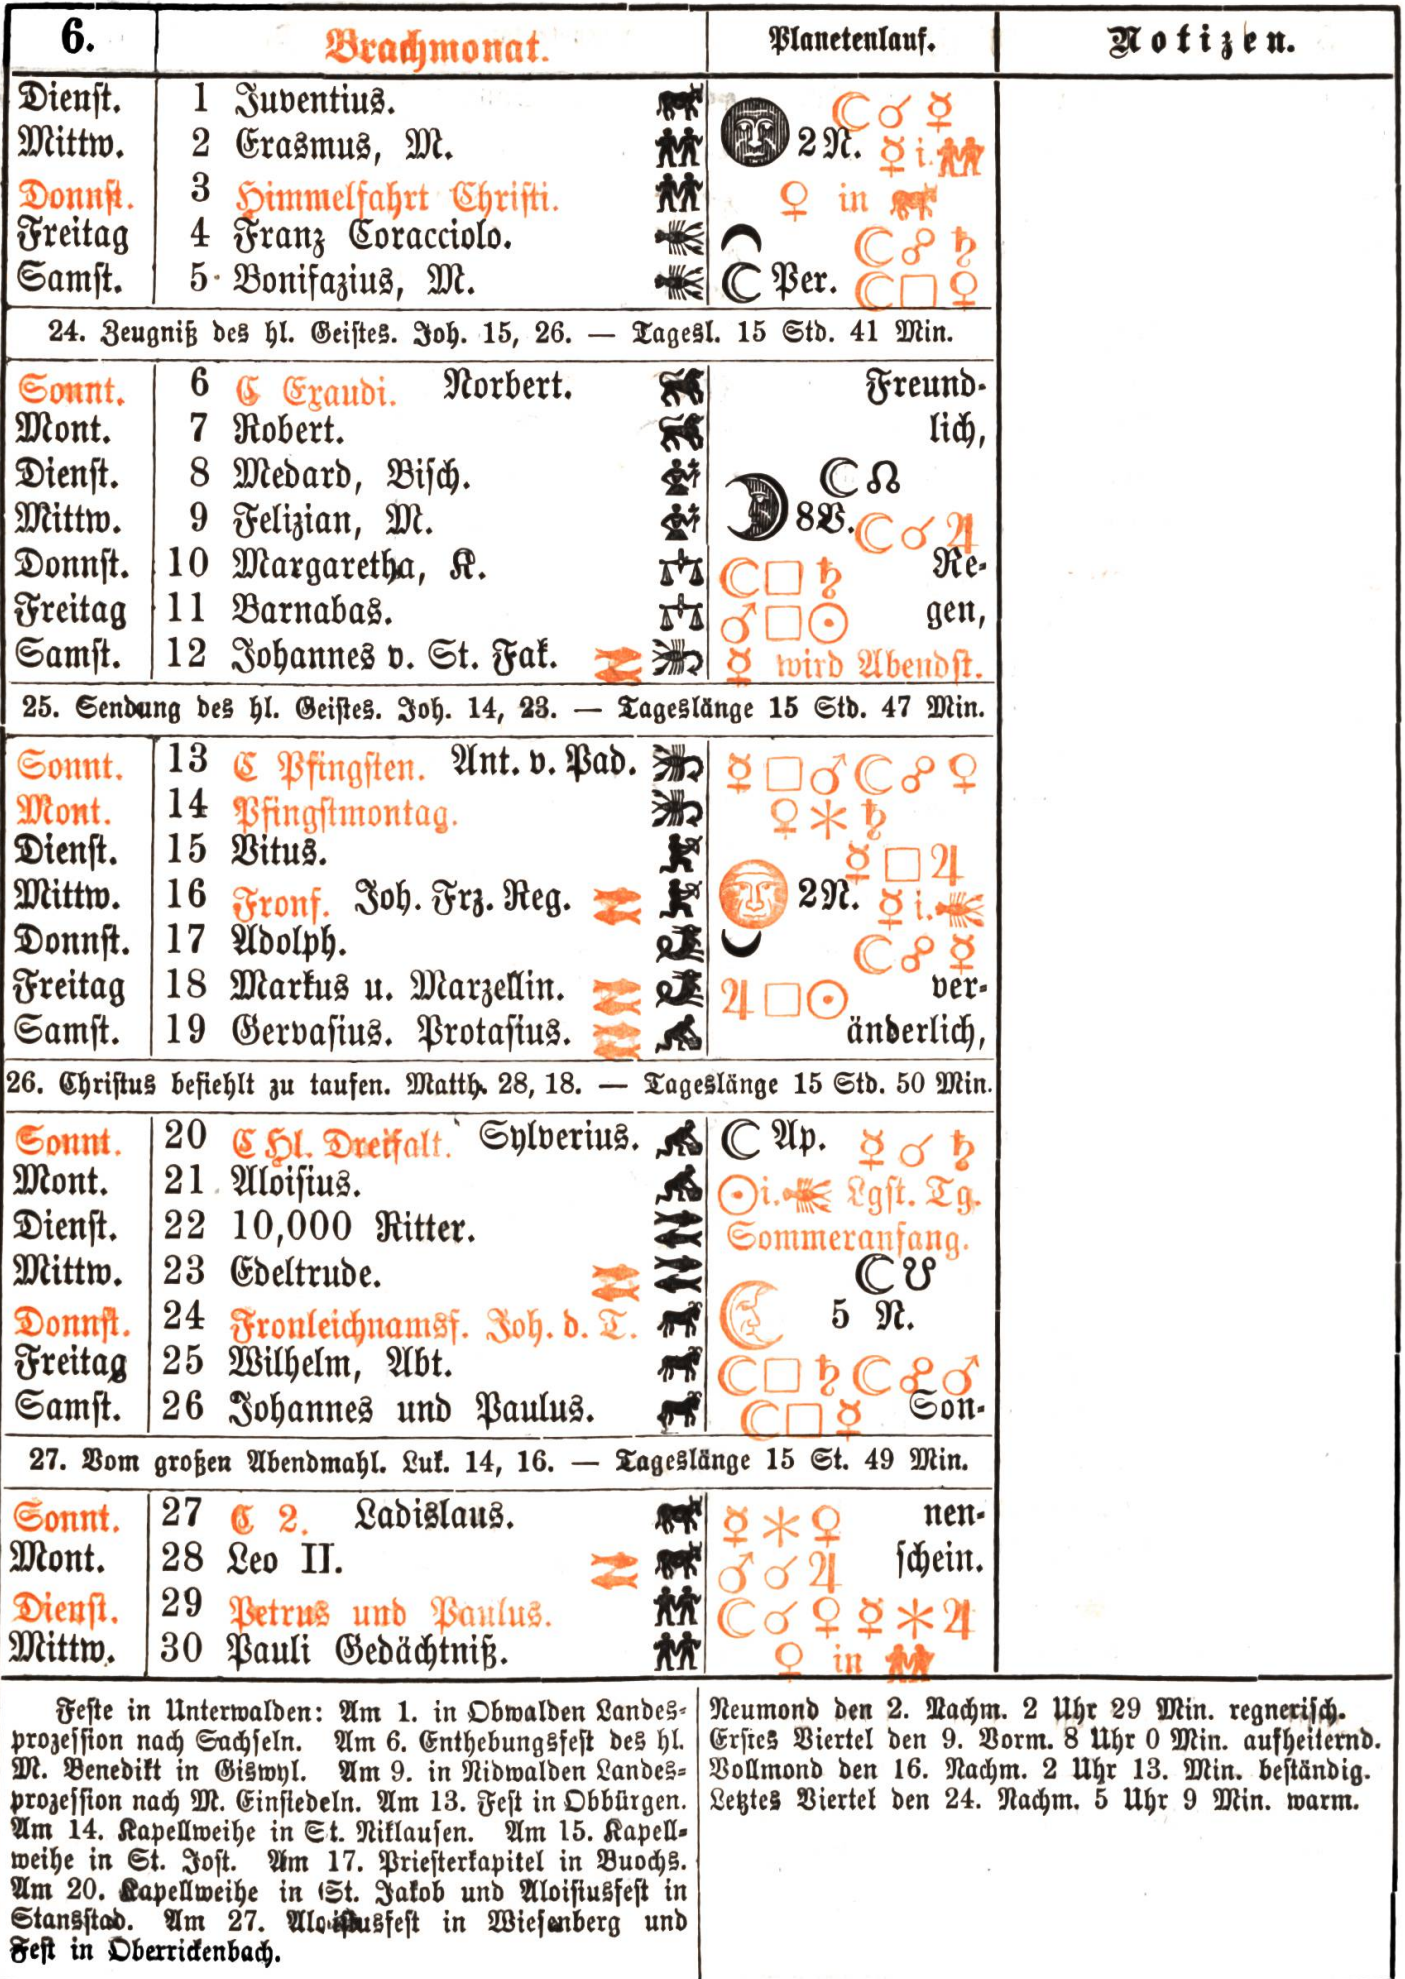 6. Brachmonat. Planetenlauf. Notizen.
Dienst. 1 Juventius. ☾ ☌ ☿
Mittw. 2 Erasmus, M. 2 N. ☿ i.
Donnst. 3 Himmelfahrt Christi. ♀ in
Freitag 4 Franz Coracciolo. ☾ ☍ ♄
Samst. 5 Bonifazius, M. ☾ Per. ☾ □ ♀
24. Zeugniß des hl. Geistes. Joh. 15, 26. — Tagesl. 15 Std. 41 Min.
Sonnt. 6 C Exaudi. Norbert. Freund-
Mont. 7 Robert. lich,
Dienst. 8 Medard, Bisch. ☾ ☊
Mittw. 9 Felizian, M. 8 V. ☾ ☌ ♃
Donnst. 10 Margaretha, K. ☾ □ ♄ Re-
Freitag 11 Barnabas. ♂ □ ☉ gen,
Samst. 12 Johannes v. St. Fak. ☿ wird Abendst.
25. Sendung des hl. Geistes. Joh. 14, 23. — Tageslänge 15 Std. 47 Min.
Sonnt. 13 C Pfingsten. Ant. v. Pad. ☿ □ ♂ ☾ ☍ ♀
Mont. 14 Pfingstmontag. ♀ ✶ ♄
Dienst. 15 Vitus. ☿ □ ♃
Mittw. 16 Fronf. Joh. Frz. Reg. 2 N. ☿ i.
Donnst. 17 Adolph. ☾ ☍ ☿
Freitag 18 Markus u. Marzellin. ♃ □ ☉ ver-
Samst. 19 Gervasius. Protasius. änderlich,
26. Christus befiehlt zu taufen. Matth. 28, 18. — Tageslänge 15 Std. 50 Min.
Sonnt. 20 C Hl. Dreifalt. Sylverius. ☾ Ap. ☿ ☌ ♄
Mont. 21 Aloisius. ☉ i. Lgst. Tg.
Dienst. 22 10,000 Ritter. Sommeranfang.
Mittw. 23 Edeltrude. ☾ ☋
Donnst. 24 Fronleichnamsf. Joh. d. T. 5 N.
Freitag 25 Wilhelm, Abt. ☾ □ ♄ ☾ ☍ ♂
Samst. 26 Johannes und Paulus. ☾ □ ☿ Son-
27. Vom großen Abendmahl. Luk. 14, 16. — Tageslänge 15 St. 49 Min.
Sonnt. 27 C 2. Ladislaus. ☿ ✶ ♀ nen-
Mont. 28 Leo II. ♂ ☌ ♃ schein.
Dienst. 29 Petrus und Paulus. ☾ ☌ ♀ ☿ ✶ ♃
Mittw. 30 Pauli Gedächtniß. ♀ in
Feste in Unterwalden: Am 1. in Obwalden Landes-
prozession nach Sachseln. Am 6. Enthebungsfest des hl.
M. Benedikt in Giswyl. Am 9. in Nidwalden Landes-
prozession nach M. Einsiedeln. Am 13. Fest in Obbürgen.
Am 14. Kapellweihe in St. Niklausen. Am 15. Kapell-
weihe in St. Jost. Am 17. Priesterkapitel in Buochs.
Am 20. Kapellweihe in St. Jakob und Aloisiusfest in
Stansstad. Am 27. Aloisiusfest in Wiesenberg und
Fest in Oberrickenbach.
Neumond den 2. Nachm. 2 Uhr 29 Min. regnerisch.
Erstes Viertel den 9. Vorm. 8 Uhr 0 Min. aufheiternd.
Vollmond den 16. Nachm. 2 Uhr 13. Min. beständig.
Letztes Viertel den 24. Nachm. 5 Uhr 9 Min. warm.